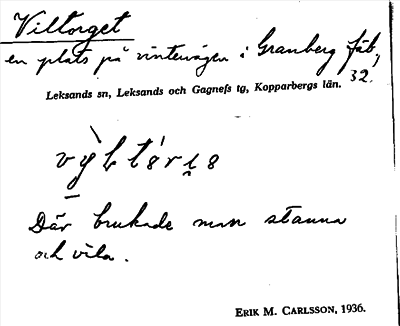 Viltorget
en plats på vintervägen i Granberg fäb,
32.
Leksands sn, Leksands och Gagnefs tg, Kopparbergs län.
Där brukade man stanna
och vila.
ERIK M. CARLSSON, 1936.